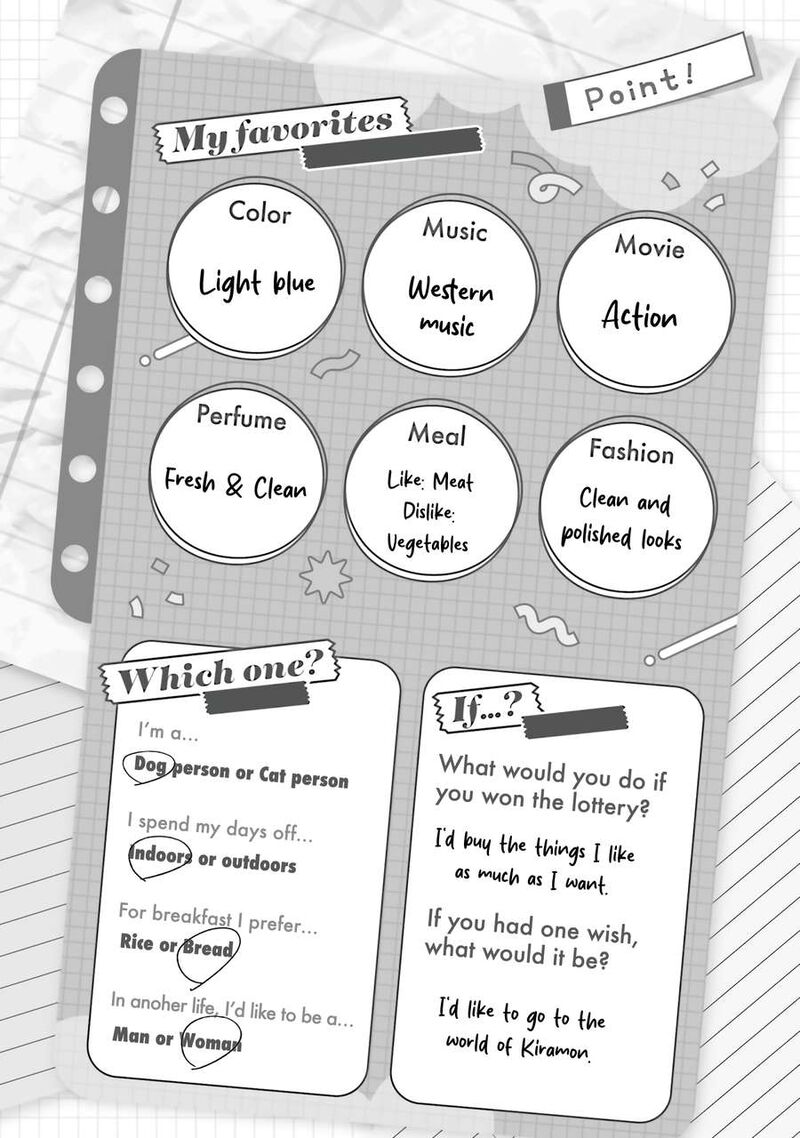 Point!
My favorites
Color
Light blue
Music
Western
music
Movie
Action
Perfume
Fresh & Clean
Meal
Like: Meat
Dislike:
Vegetables
Fashion
Clean and
polished looks
Which one?
I'm a...
Dog person or Cat person
I spend my days off...
Indoors or outdoors
For breakfast I prefer...
Rice or Bread
In anoher life, I'd like to be a...
Man or Woman
If...?
What would you do if
you won the lottery?
I'd buy the things I like
as much as I want.
If you had one wish,
what would it be?
I'd like to go to the
world of Kiramon.